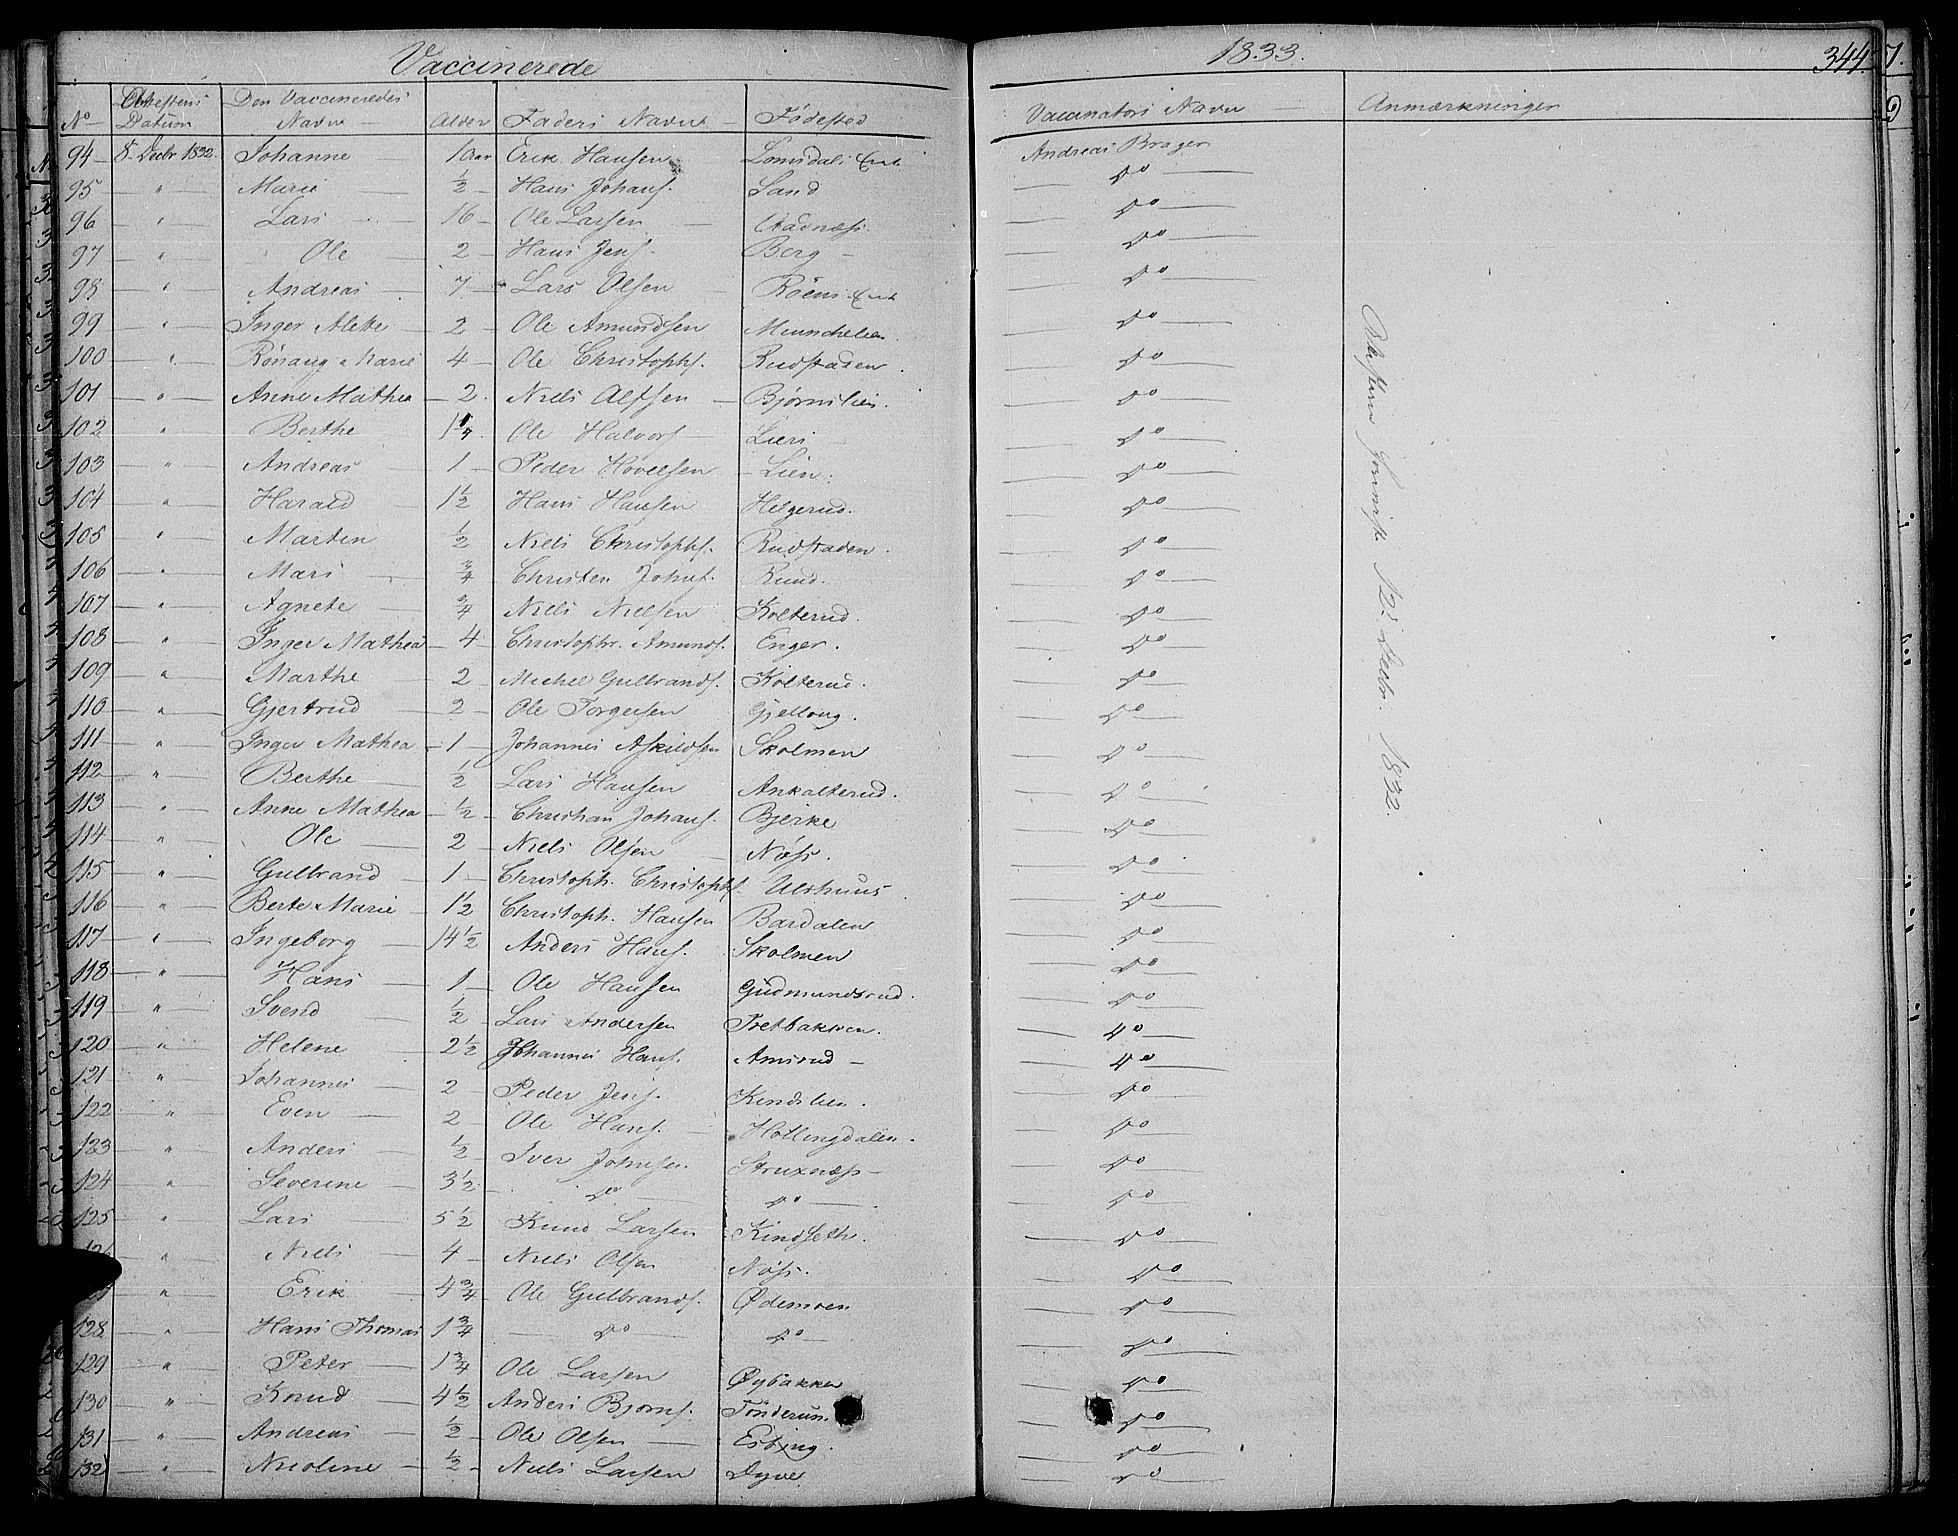 Vaccinerede 1833. 344.
No Attestens Datum Den Vaccineredes Navn Alder Faders Navn Fødested Vaccinators Navn Anmærkninger
94 8 Decbr 1832. Johanne 1 Aar Erik Hansen Lomsdals Andreas Brager
95 " Marie ½ Hans Johans. Land do
96 " Lars 16 Ole Larsen Aadnæss. do
97 " Ole 2 Hans Jens. Berg do
98 " Andreas 7 Lars Olsen Röens do
99 " Inger Alette 2 Ole Amundsen do
100 " Rönaug Marie 4 Ole Christophs. Rudstaden do
101 " Anne Mathea 2 Niels Alfsen Bjørnilien. do
102 " Berthe Ole Halvors. Liens do
103 " Andreas 1 Peder Hovelsen Lien. do
104 " Harald 1½ Hans Hansen Helgerud. do
105 " Martin ½ Niels Christophs. Rudstaden. do
106 " Mari ¾ Christen Johns. Ruud. do
107 " Agnete ¾ Niels Nielsen Kolterud. do
108 " Inger Mathea 4 Christophr. Amunds. Enger. do
109 " Marthe 2 Michel Gulbrands. Kolterud. do
110 " Gjertrud 2 Ole Torgersen Gjelloug. do
111 " Inger Mathea 1 Johannes Askildsen Skolmen do
112 " Berthe ½ Lars Hansen Ankalterud. do
113 " Anne Mathea ½ Christian Johans. Bjerke do
114 " Ole 2 Niels Olsen Nøss. do
115 " Gulbrand 1 Christoph. Christophs. Ulshuus do
116 " Berte Marie 1½ Christoph. Hansen Bardalen do
117 " Ingeborg 14½ Anders Hans. Skolmen do
118 " Hans 1 Ole Hansen Gudmundsrud. do
119 " Svend ½ Lars Andersen Pretbakken. do
120 " Helene 2½ Johannes Hans. Amsrud do
121 " Johannes 2 Peder Jens. Kindslien. do
122 " Even 2 Ole Hans. Hollingdalen. do
123 " Anders ½ Iver Johnsen Struxnæss do
124 " Severine 3½ do do do
125 " Lars 5½ Knud Larsen Kindseth. do
126 " Niels 4 Niels Olsen Nøss. do
" Erik 4¾ Ole Gulbrands. Ødemoen do
128 " Hans Thomas 1¾ do do do
129 " Peter 1¾ Ole Larsen Øybakken do
130 " Knud 4½ Anders Bjorns. Tönderum do
131 " Andreas ½ Ole Olsen Esbjug. do
132 " Nicoline ½ Niels Larsen Dyve do
12. Decbr. 1832.